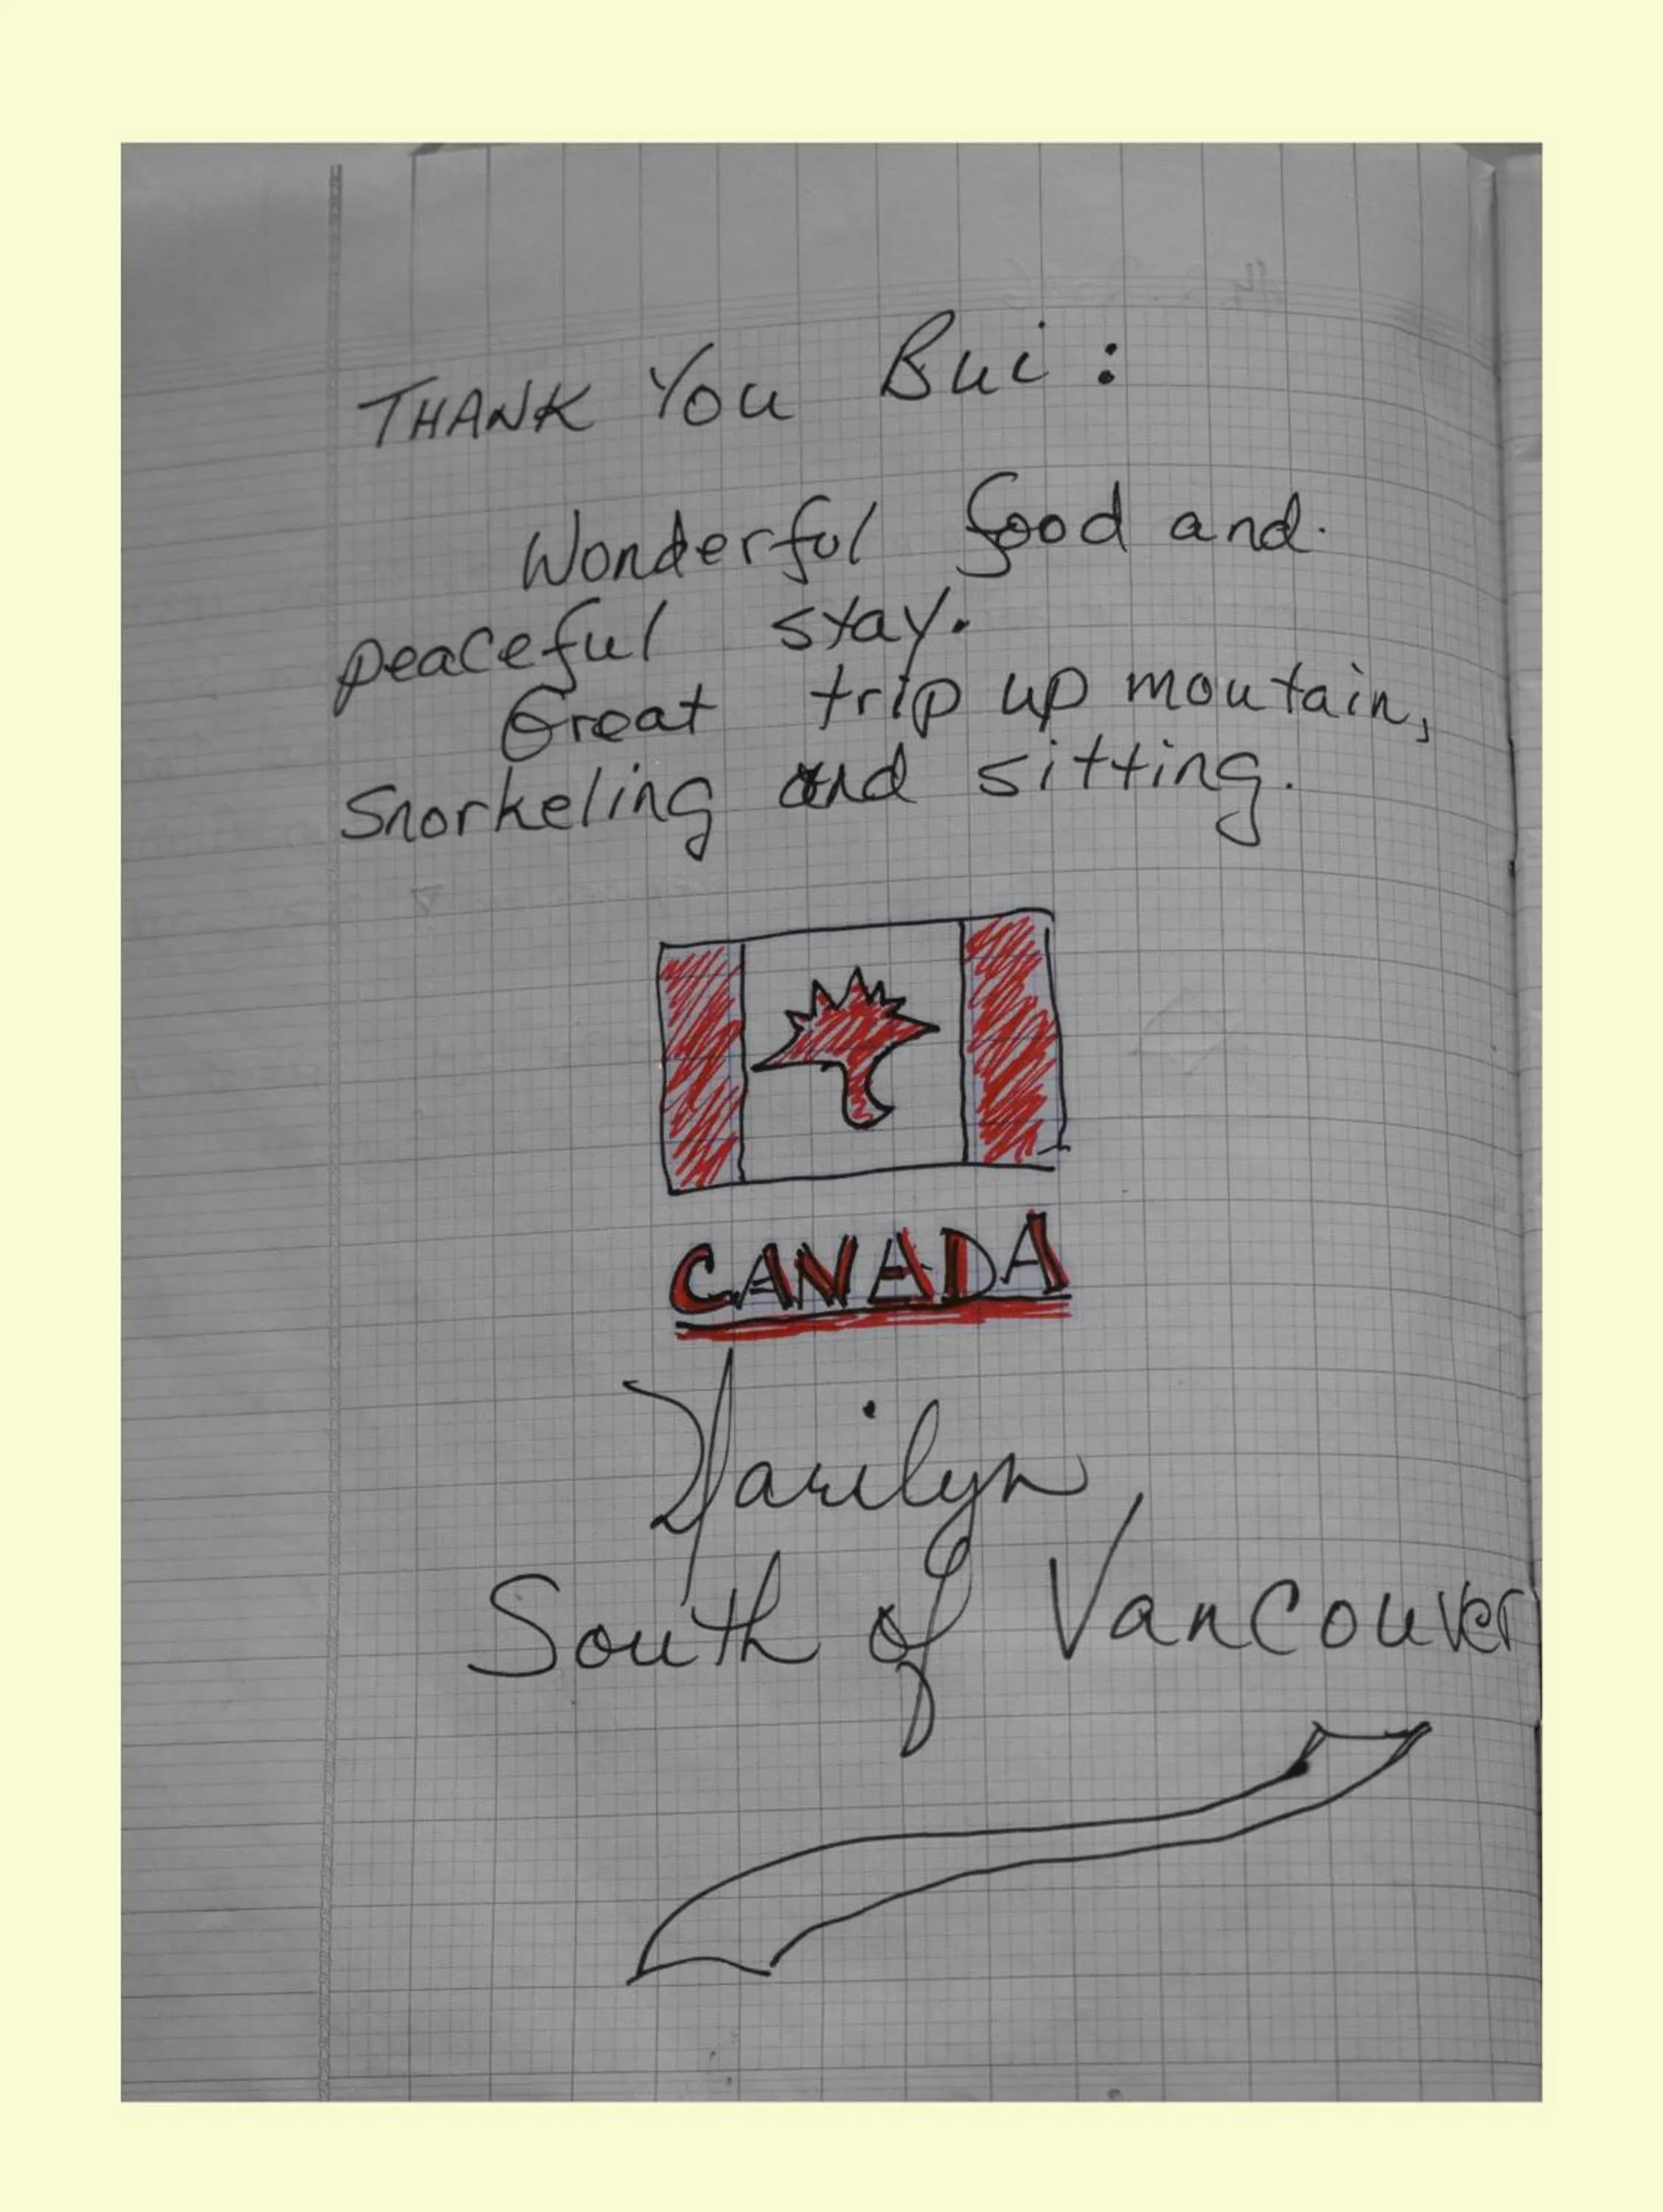 THANK YOU Bui :
Wonderful food and.
peaceful stay.
Great trip up moutain,
Snorkeling and sitting.
CANADA
Marilyn
South of Vancouver